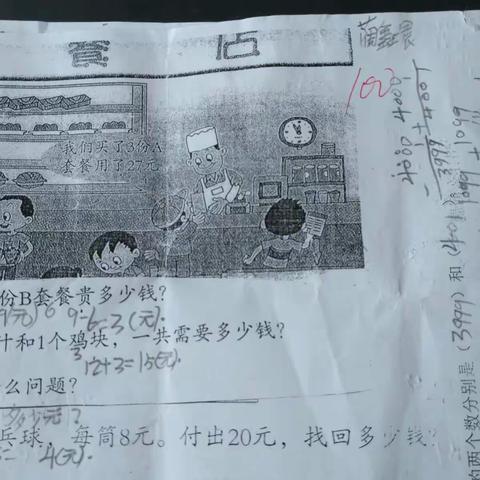 餐 店
100
我们买了3份A
套餐用了27元
份B套餐贵多少钱?
9-6=3(元)
汁和1个鸡块，一共需要多少钱?
12+3=15(元)
么问题?
多少元?
乓球，每筒8元。付出20元，找回多少钱?
4(元)
的两个数分别是（3999）和（4001）
4000
3999
1099